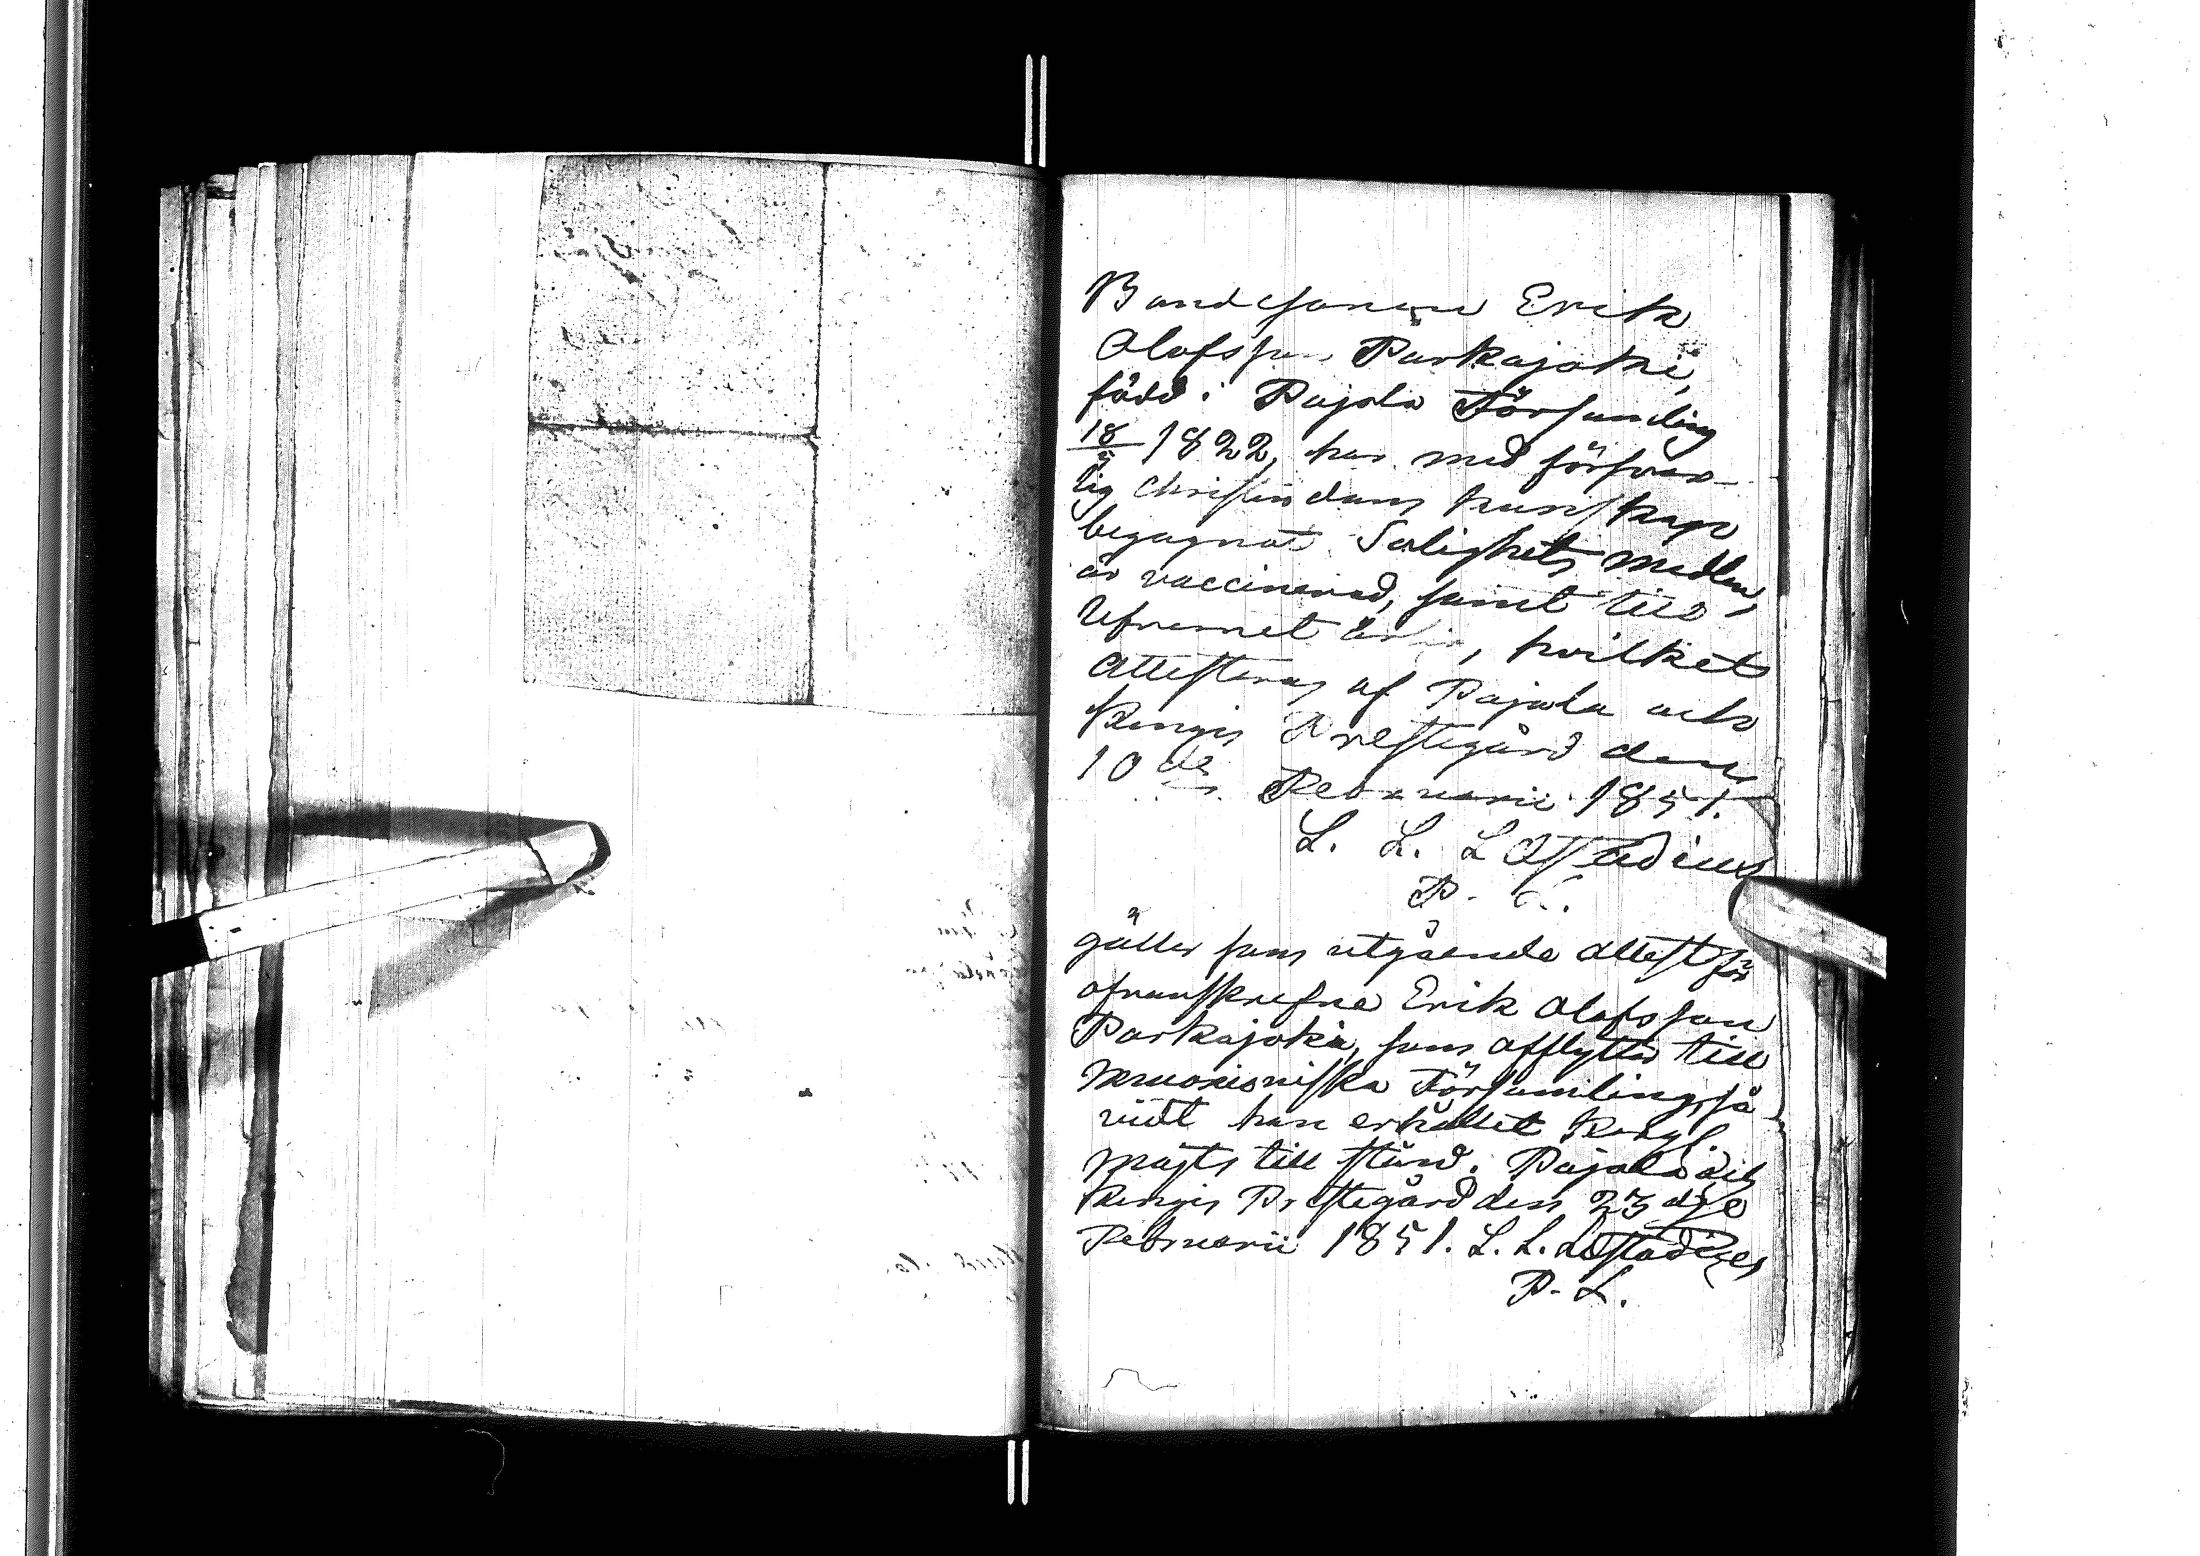 Bondesonen Erik
Olofsson Parkajoki,
född i Pajala Församling
18/5 1822, har med försvar-
lig Christendoms kunskap
begagnat Salighets medlen,
är vaccinerad, samt till
lefvernet ärlig, hvilket
attesteras af Pajala och
Kengis Prestegård den
10de Februarii 1851.
L. L. Læstadius
P. L.
gäller som utgående attest för
ofvanskrefne Erik Olofsson
Parkajoki, som afflyttar till
Muonioniska Församling, så
vidt han erhållet Kongl.
Majts till stånd. Pajala och
Kengis Prestegård den 23 dje
Februarii 1851. L. L. Læstadius
P. L.